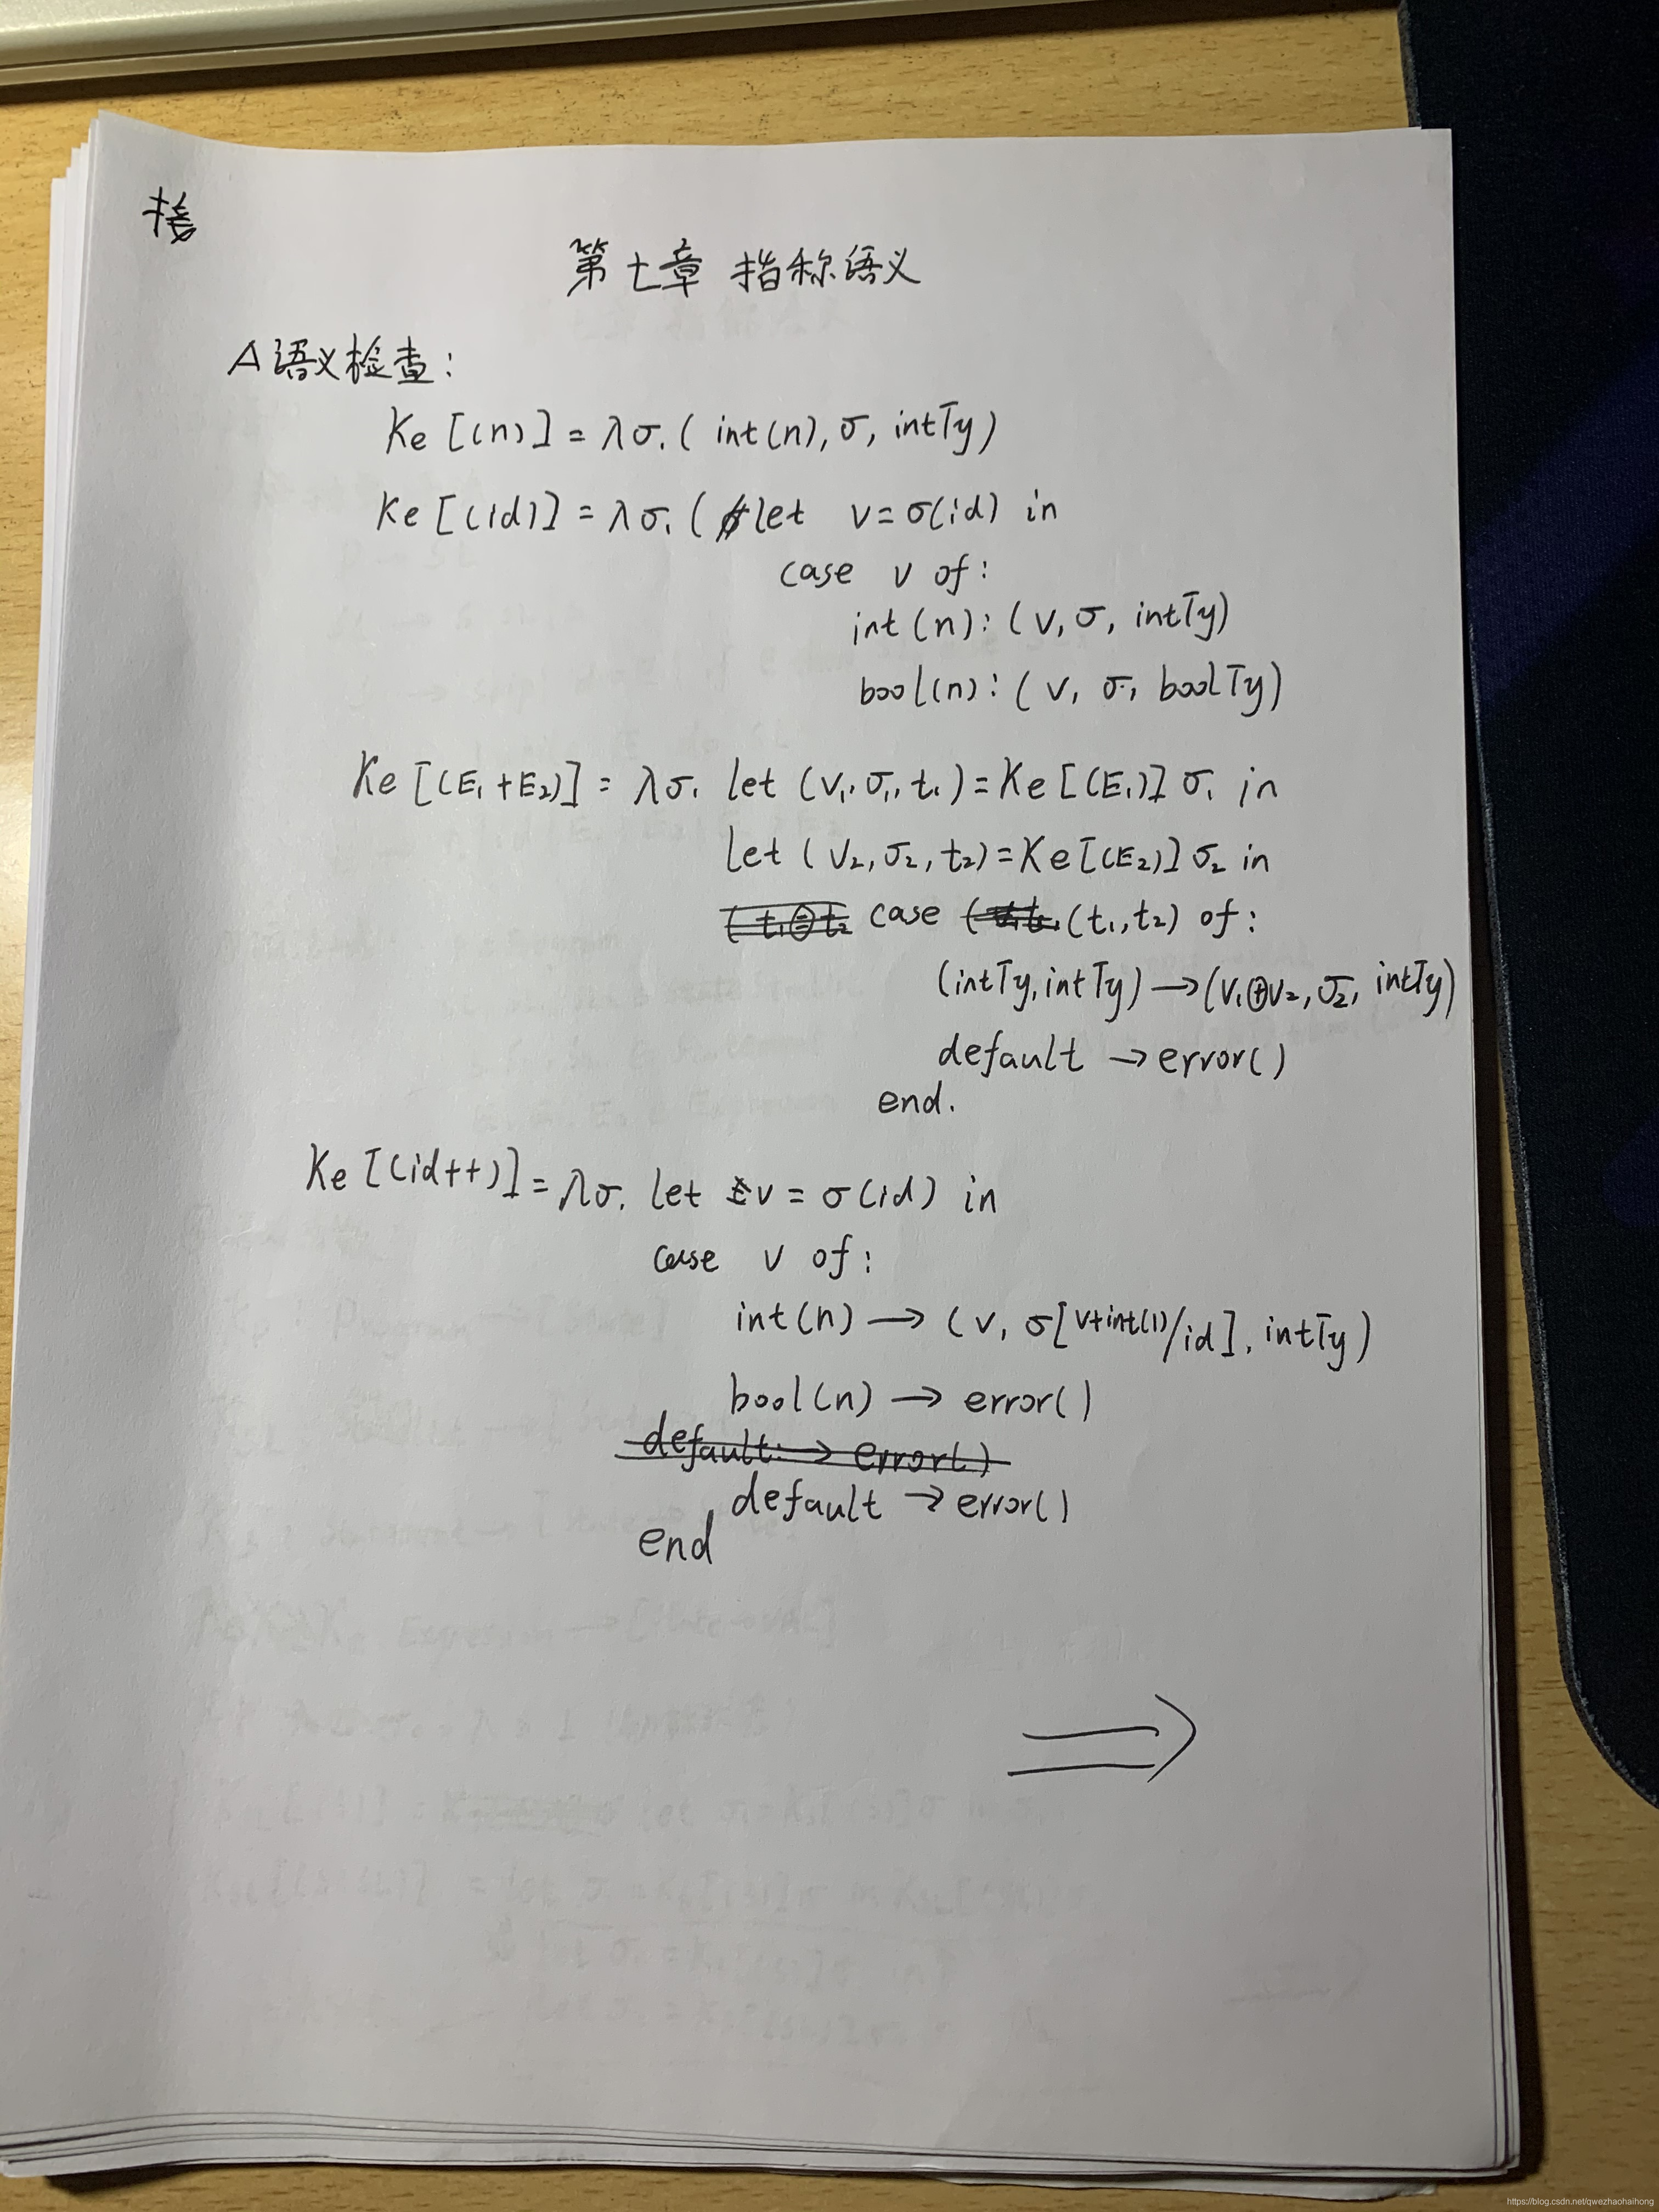 第七章 指称语义
A语义检查:
Ke[(n)] = λσ.( int(n), σ, intTy)
Ke[(id)] = λσ.( let v=σ(id) in
case v of:
int(n): (v, σ, intTy)
bool(n): (v, σ, boolTy)
Ke[(E₁+E₂)] = λσ. let (v₁,σ₁,t₁)=Ke[(E₁)]σ. in
let (v₂,σ₂,t₂)=Ke[(E₂)]σ₂ in
case (t₁,t₂) of:
(intTy,intTy)→(v₁⊕v₂,σ₂, intTy)
default →error()
end.
Ke[(id++)] = λσ. let v = σ(id) in
case v of:
int(n) → (v, σ[v+int(1)/id], intTy)
bool(n) → error()
default: → error()
default → error()
end
https://blog.csdn.net/qwezhaohaihong